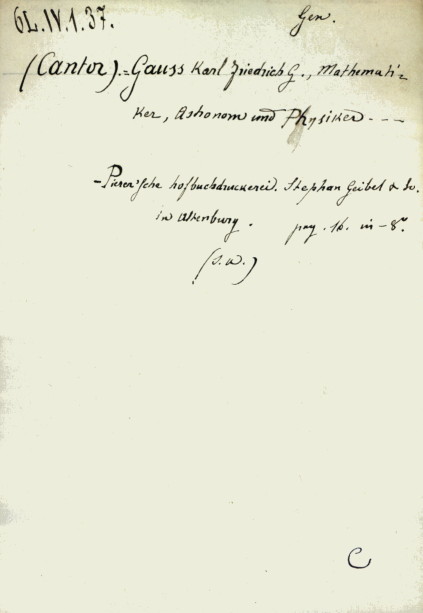 6L.IV.1.37.
Gen.
(Cantor).=Gauss Karl Friedrich G., Mathemati=
ker, Astronom und Physiker ---
-Pierer'sche hofbuchdruckerei. Stephan Geibel & Co.
in Altenburg. pag. 16. in-8°.
(s.a.)
C